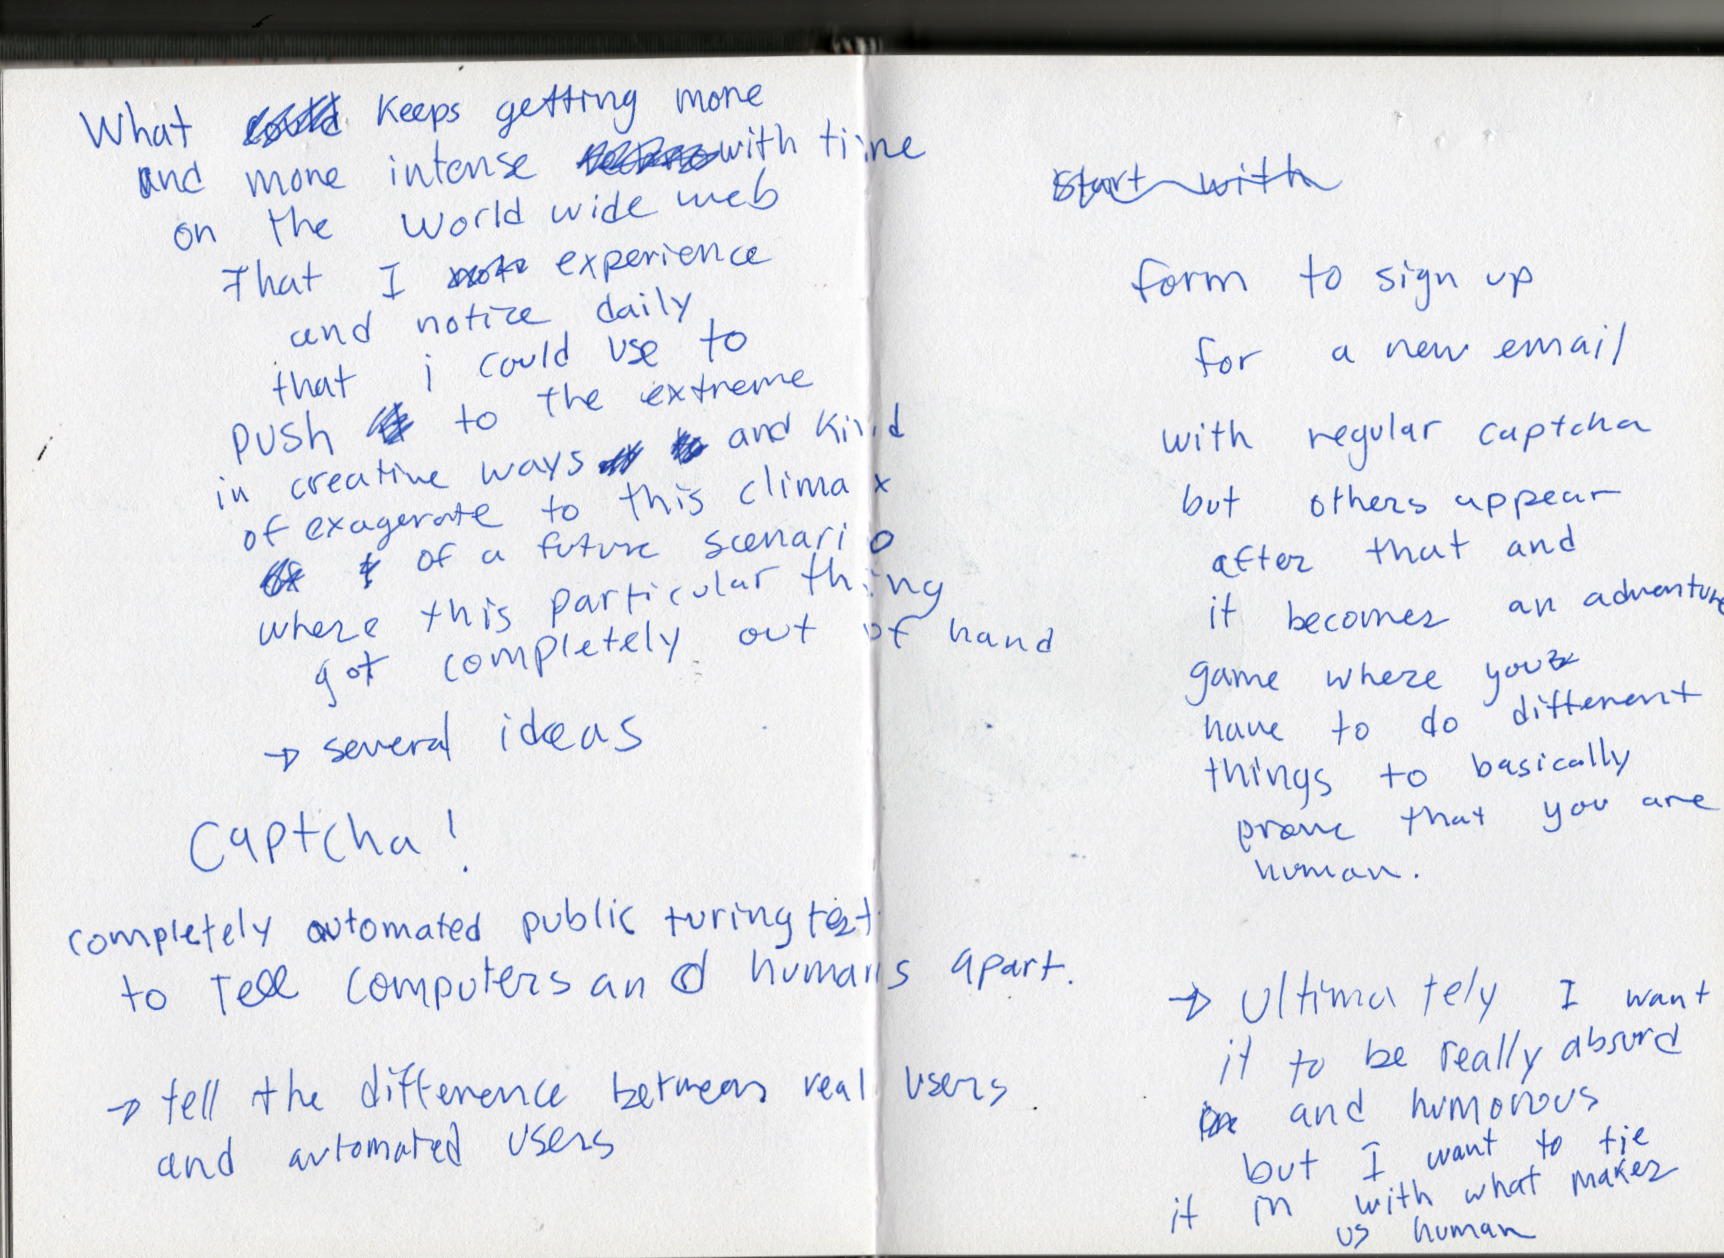 What could keeps getting more
and more intense with time
on the world wide web
that I note experience
and notice daily
that i could use to
push to the extreme
in creative ways and kind
of exagerate to this climax
of a future scenario
where this particular thing
got completely out of hand
→ several ideas
Captcha!
completely automated public turing test
to tell computers and humans apart.
→ tell the difference between real users
and automated users
start with
form to sign up
for a new email
with regular captcha
but others appear
after that and
it becomes an adventure
game where you
have to do different
things to basically
prove that you are
human.
→ Ultimately I want
it to be really absurd
and humorous
but I want to tie
it in with what makes
us human